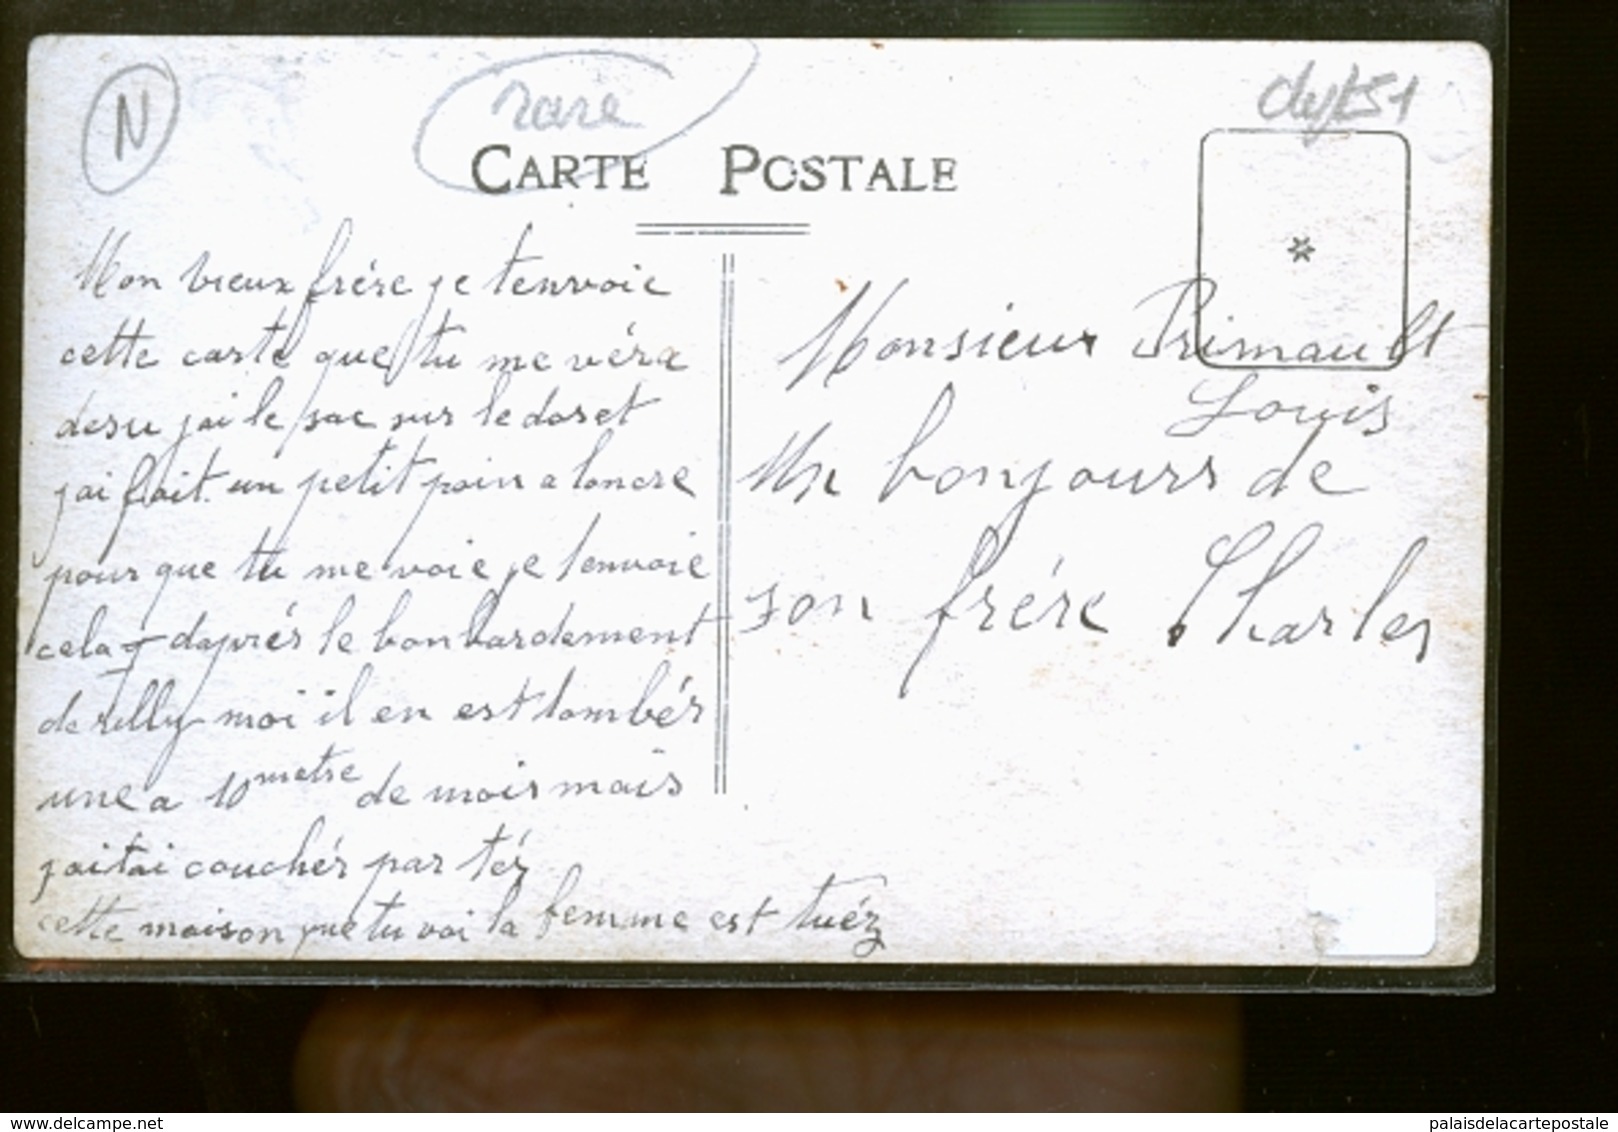 N
rare
CARTE POSTALE
Mon vieux frére je tenvoie
cette carte que tu me véra
desu jai le sac sur le doset
jai fait un petit poin a loncre
pour que tu me voie je lenvoie
cela daprés le bonbardement
de rilly moi il en est tombér
une a 10 metre de moir mais
jaitai couchér par téz
cette maison que tu voi la femme est tuéz
Monsieur Primault
Louis
Un bonjours de
son frére Charles
delcampe.net
palaisdelacartepostale